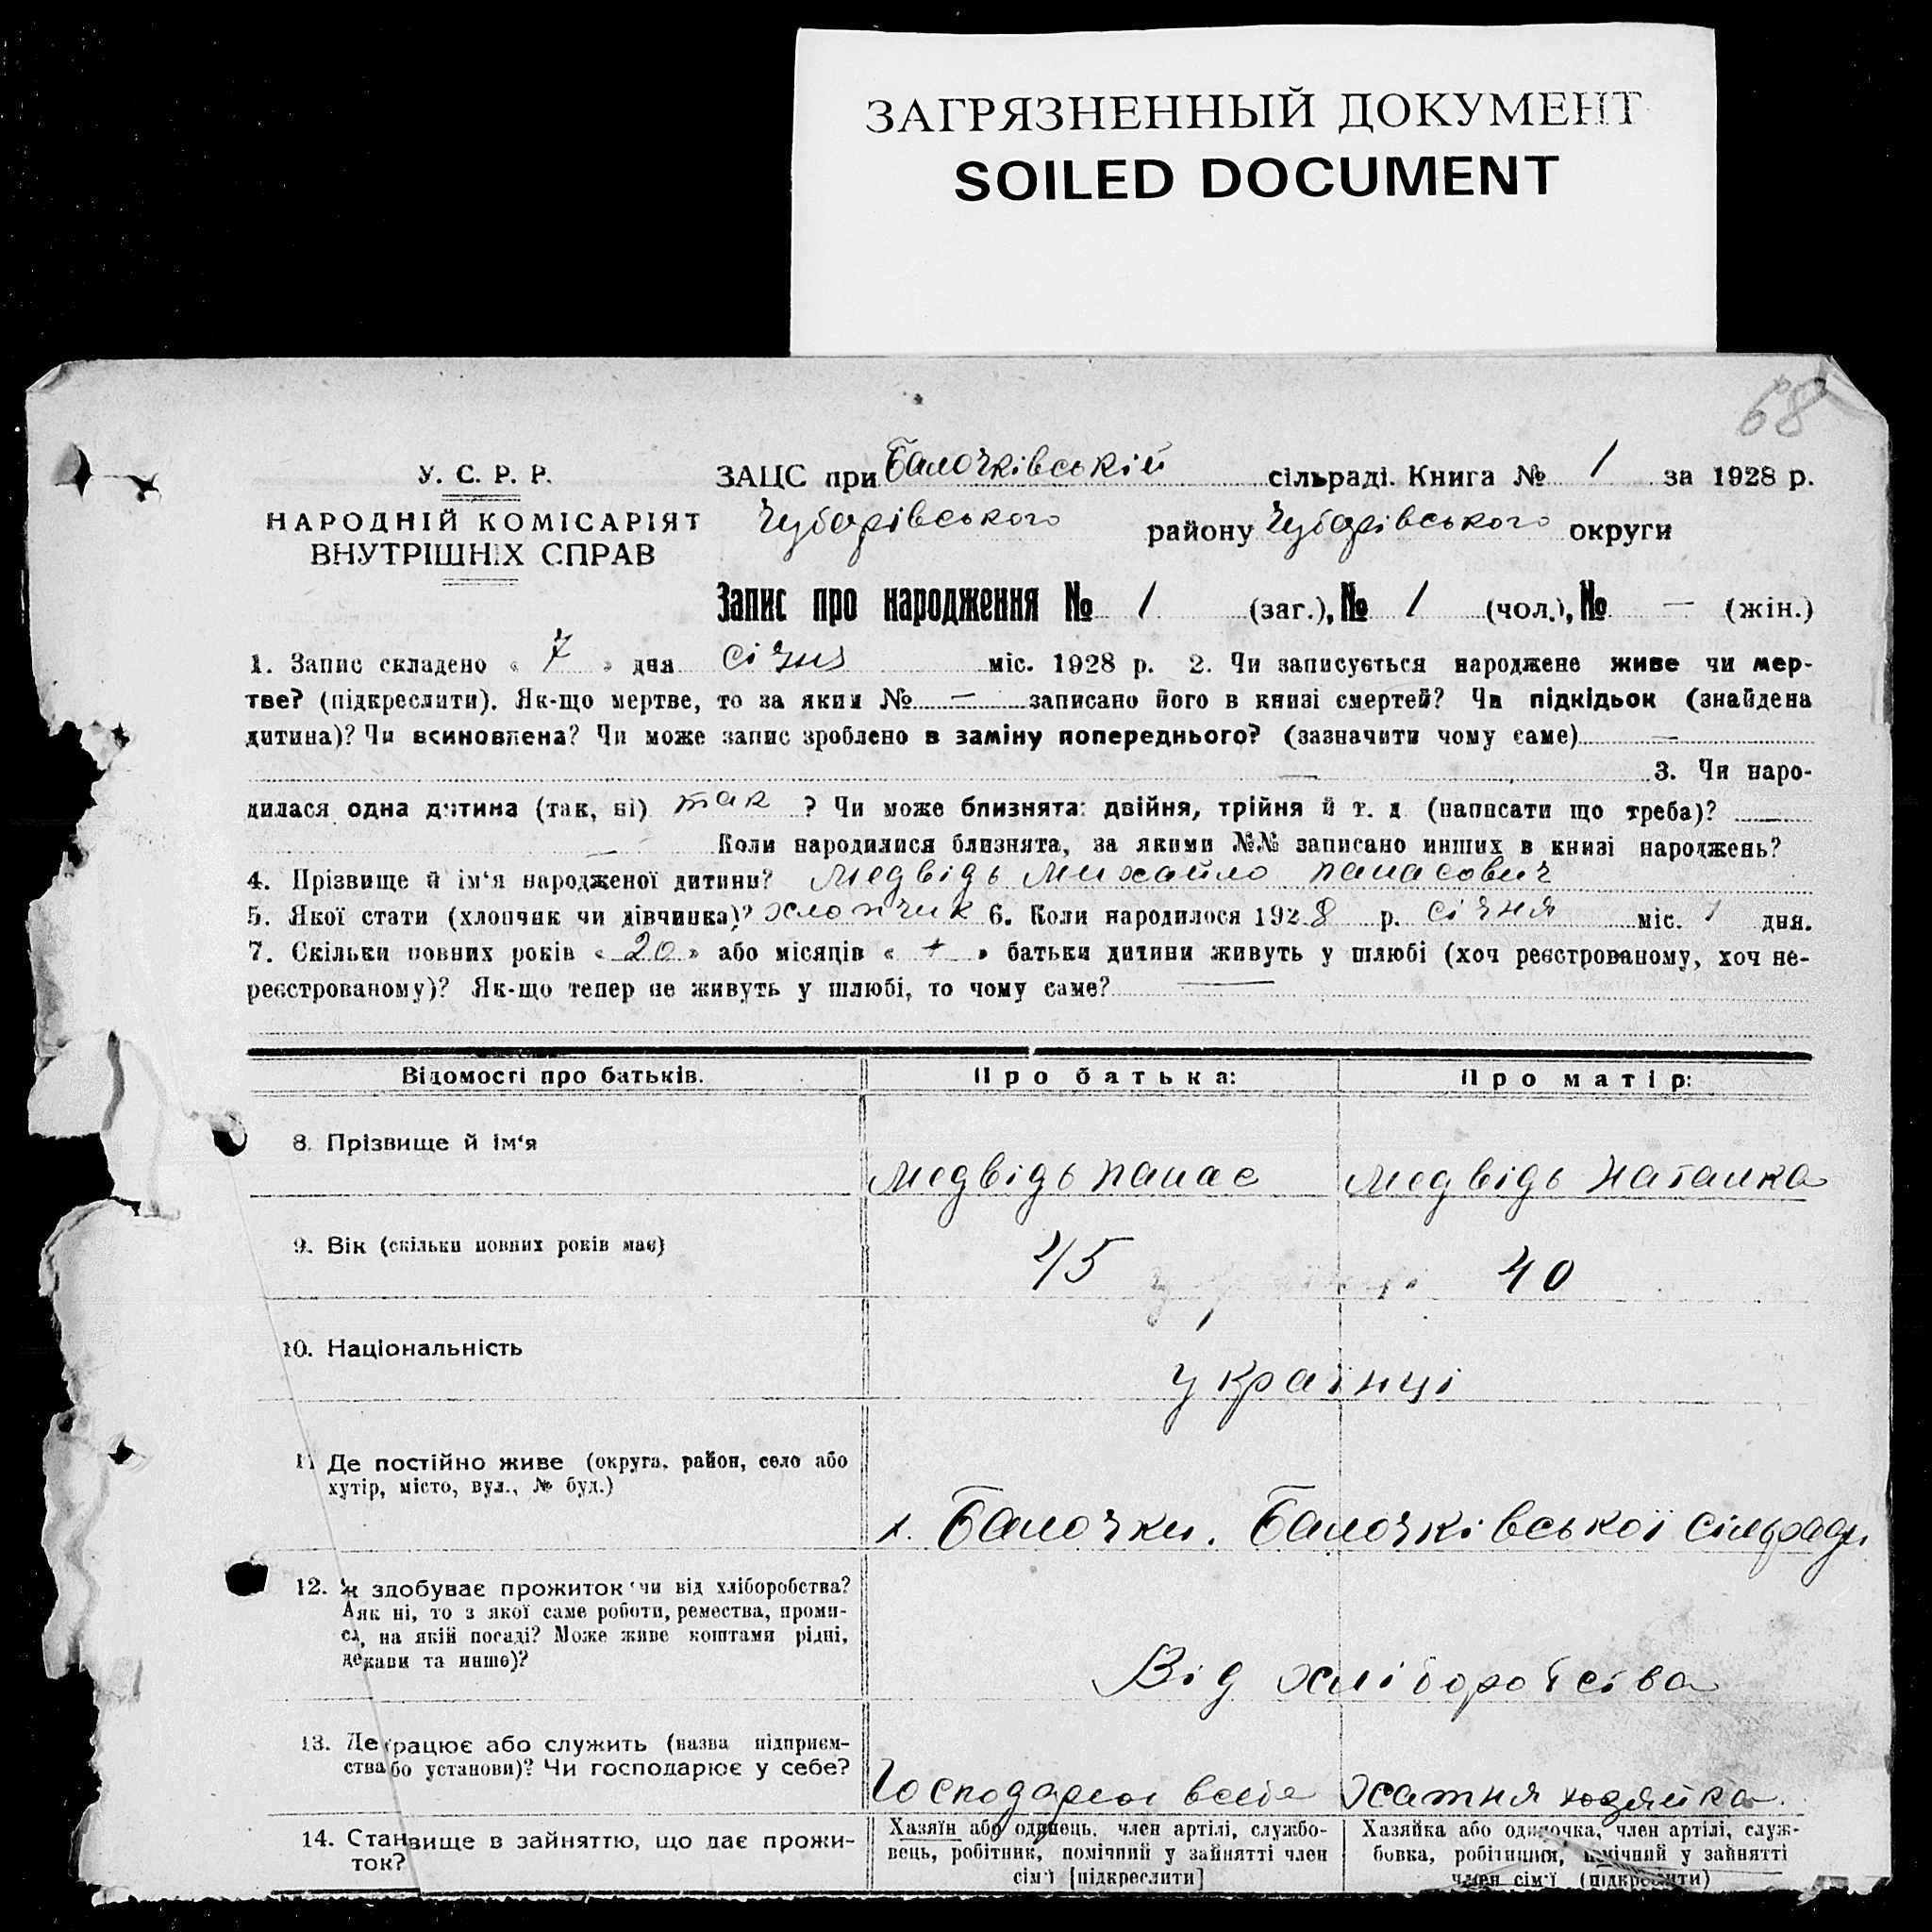 ЗАГРЯЗНЕННЫЙ ДОКУМЕНТ
SOILED DOCUMENT
68
У. С. Р. Р.
НАРОДНІЙ КОМІСАРІЯТ
ВНУТРІШНІХ СПРАВ
ЗАЦС при Балочківській сільраді. Книга № 1 за 1928 р.
Чубарівського району Чубарівського округи
Запис про народження № 1 (заг.), № 1 (чол.), № — (жін.)
1. Запис складено « 7 » дня січня міс. 1928 р. 2. Чи записується народжене живе чи мер-
тве? (підкреслити). Як-що мертве, то за яким № — записано його в книзі смертей? Чи підкідьок (знайдена
дитина)? Чи всиновлена? Чи може запис зроблено в заміну попереднього? (зазначити чому саме) —
— 3. Чи наро-
дилася одна дитина (так, ні) так ? Чи може близнята: двійня, трійня й т. д. (написати що треба)?
— Коли народилися близнята, за якими №№ записано инших в книзі народжень?
4. Прізвище й ім'я народженої дитини? Медвідь Михайло Панасович
5. Якої стати (хлопчик чи дівчинка)? хлопчик 6. Коли народилося 1928 р. січня міс. 1 дня.
7. Скільки повних років « 20 » або місяців « + » батьки дитини живуть у шлюбі (хоч реєстрованому, хоч не-
реєстрованому)? Як-що тепер не живуть у шлюбі, то чому саме? —
Відомості про батьків. Про батька: Про матір:
8. Прізвище й ім'я Медвідь Панас Медвідь Наталка
9. Вік (скільки повних років має) 45 40
10. Національність українці
11 Де постійно живе (округа, район, село або
хутір, місто, вул., № буд.)
х. Балочки. Балочківської сільради
12. Як здобуває прожиток чи від хліборобства?
А як ні, то з якої саме роботи, ремества, проми-
сл, на якій посаді? Може живе коштами рідні,
держави та инше)?
Від хліборобства
13. Де працює або служить (назва підприєм-
ства бо установи)? Чи господарює у себе?
Господарює в себе Хатня хозяйка.
14. Становище в зайняттю, що дає прожи-
ток?
Хазяїн або одинець, член артілі, службо-
вець, робітник, помічний у зайнятті член
сім'ї [підкреслити]
Хазяйка або одиночка, член артілі, служ-
бовка, робітниця, помічний у зайнятті
член сім'ї (підкреслити)